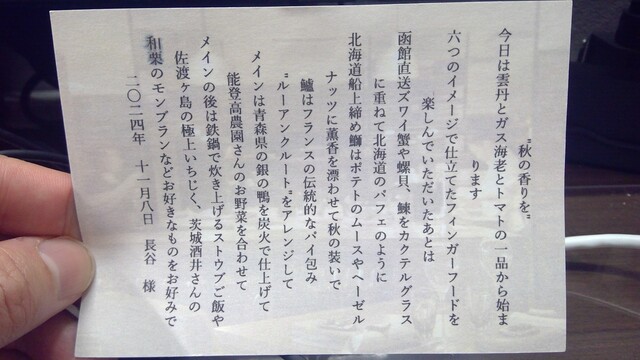 "秋の香りを"
今日は雲丹とガス海老とトマトの一品から始ま
ります
六つのイメージで仕立てたフィンガーフードを
楽しんでいただいたあとは
函館直送ズワイ蟹や螺貝、鰊をカクテルグラス
に重ねて北海道のパフェのように
北海道船上締め鰤はポテトのムースやヘーゼル
ナッツに薫香を漂わせて秋の装いで
鱸はフランスの伝統的なパイ包み
"ルーアンクルート"をアレンジして
メインは青森県の銀の鴨を炭火で仕上げて
能登高農園さんのお野菜を合わせて
メインの後は鉄鍋で炊き上げるストウブご飯や
佐渡ヶ島の極上いちじく、茨城酒井さんの
和栗のモンブランなどお好きなものをお好みで
二〇二四年 十一月八日 長谷 様